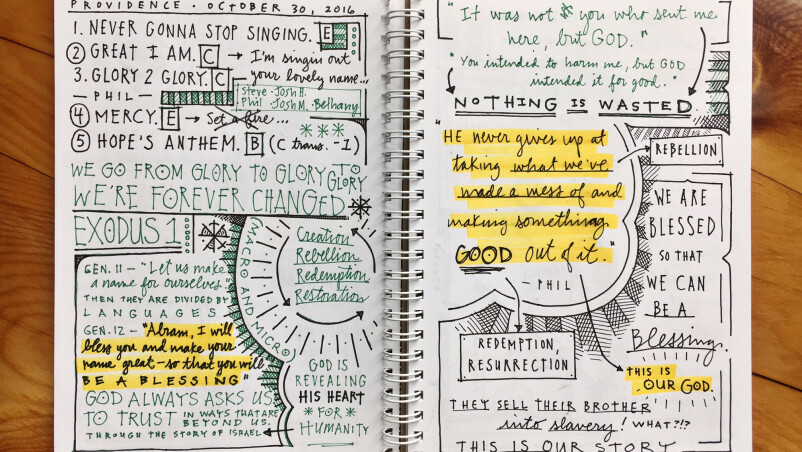 PROVIDENCE · OCTOBER 30, 2016
1. NEVER GONNA STOP SINGING. E
2 GREAT I AM. C → I'm singin out
3. GLORY 2 GLORY. C your lovely name...
— PHIL —
Steve · Josh H.
Phil Josh M. Bethany
4 MERCY. E → Set a fire...
5 HOPE'S ANTHEM. B (C trans. -1)
WE GO FROM GLORY TO GLORY TO GLORY
WE'RE FOREVER CHANGED
EXODUS 1
(MACRO AND MICRO)
Creation
Rebellion
Redemption
Restoration
GEN. 11 - "Let us make
a name for ourselves."
THEN THEY ARE DIVIDED BY
LANGUAGES
GEN. 12 - "Abram, I will
bless you and make your
name great - so that you will
BE A BLESSING"
GOD ALWAYS ASKS US
TO TRUST IN WAYS THAT ARE
BEYOND US.
THROUGH THE STORY OF ISRAEL
GOD IS
REVEALING
HIS HEART
FOR
HUMANITY
"It was not you who sent me
here, but GOD."
"You intended to harm me, but GOD
intended it for good."
NOTHING IS WASTED.
"HE never gives up at
taking what we've
made a mess of and
making something
GOOD out of it."
— PHIL
REBELLION
REDEMPTION,
RESURRECTION
WE ARE
BLESSED
SO THAT
WE CAN
BE A
Blessing.
THIS IS
OUR GOD.
THEY SELL THEIR BROTHER
into slavery! WHAT?!?
THIS IS OUR STORY